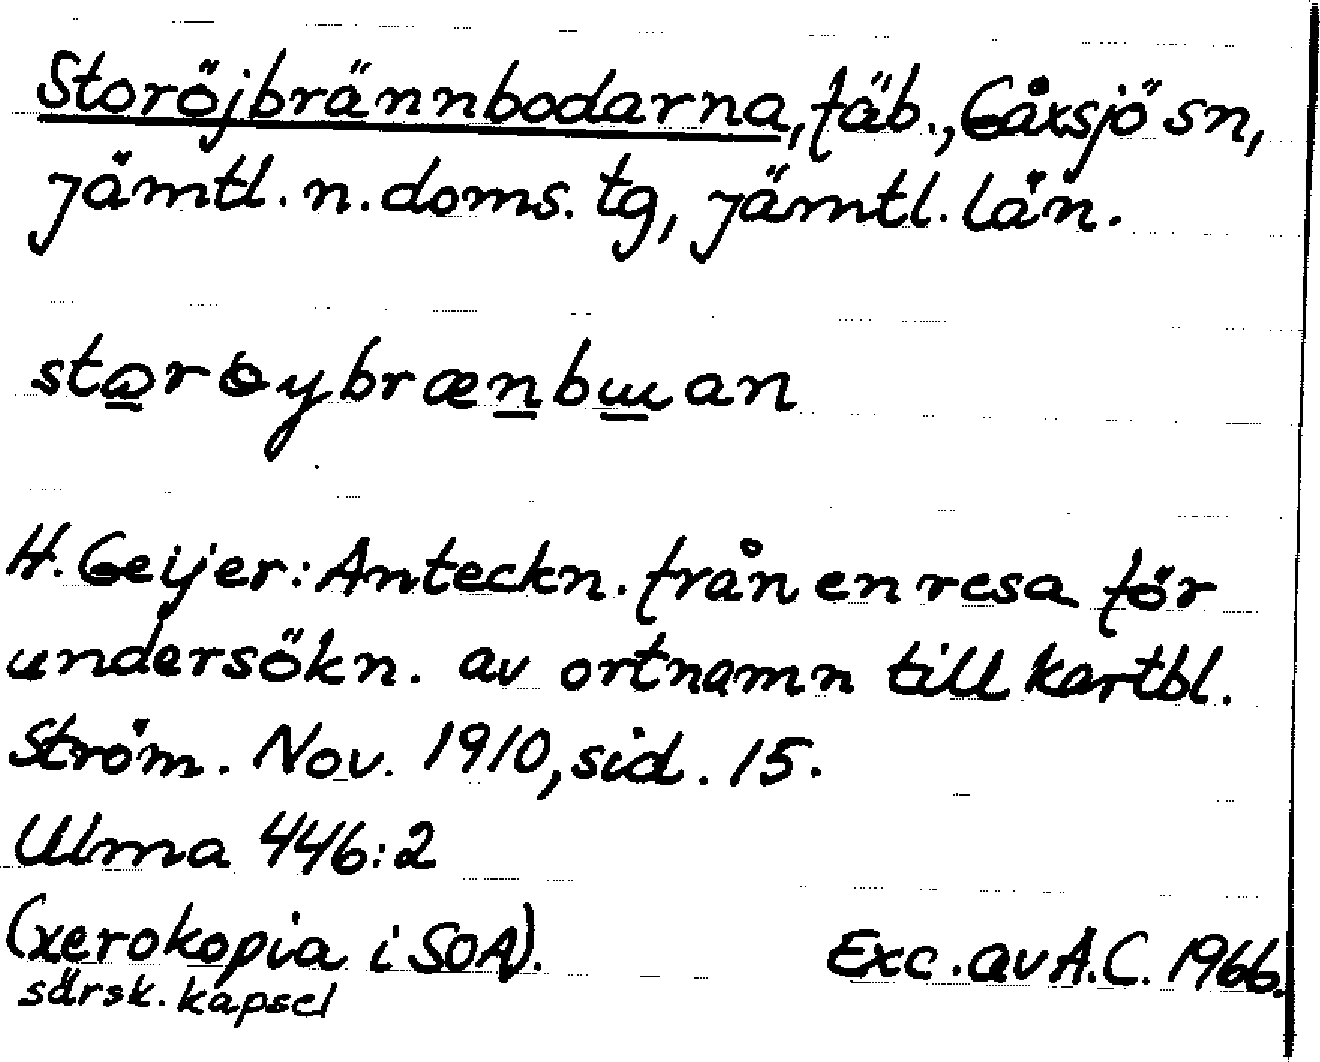 Storöjbrännbodarna, fäb., Gåxsjö sn,
Jämtl. n. doms. tg, Jämtl. län.
H. Geijer: Anteckn. från en resa för
undersökn. av ortnamn till kartbl.
Ström. Nov. 1910, sid. 15.
Ulma 446:2
(xerokopia i SOA). Exc. av A.C. 1966.
särsk. kapsel